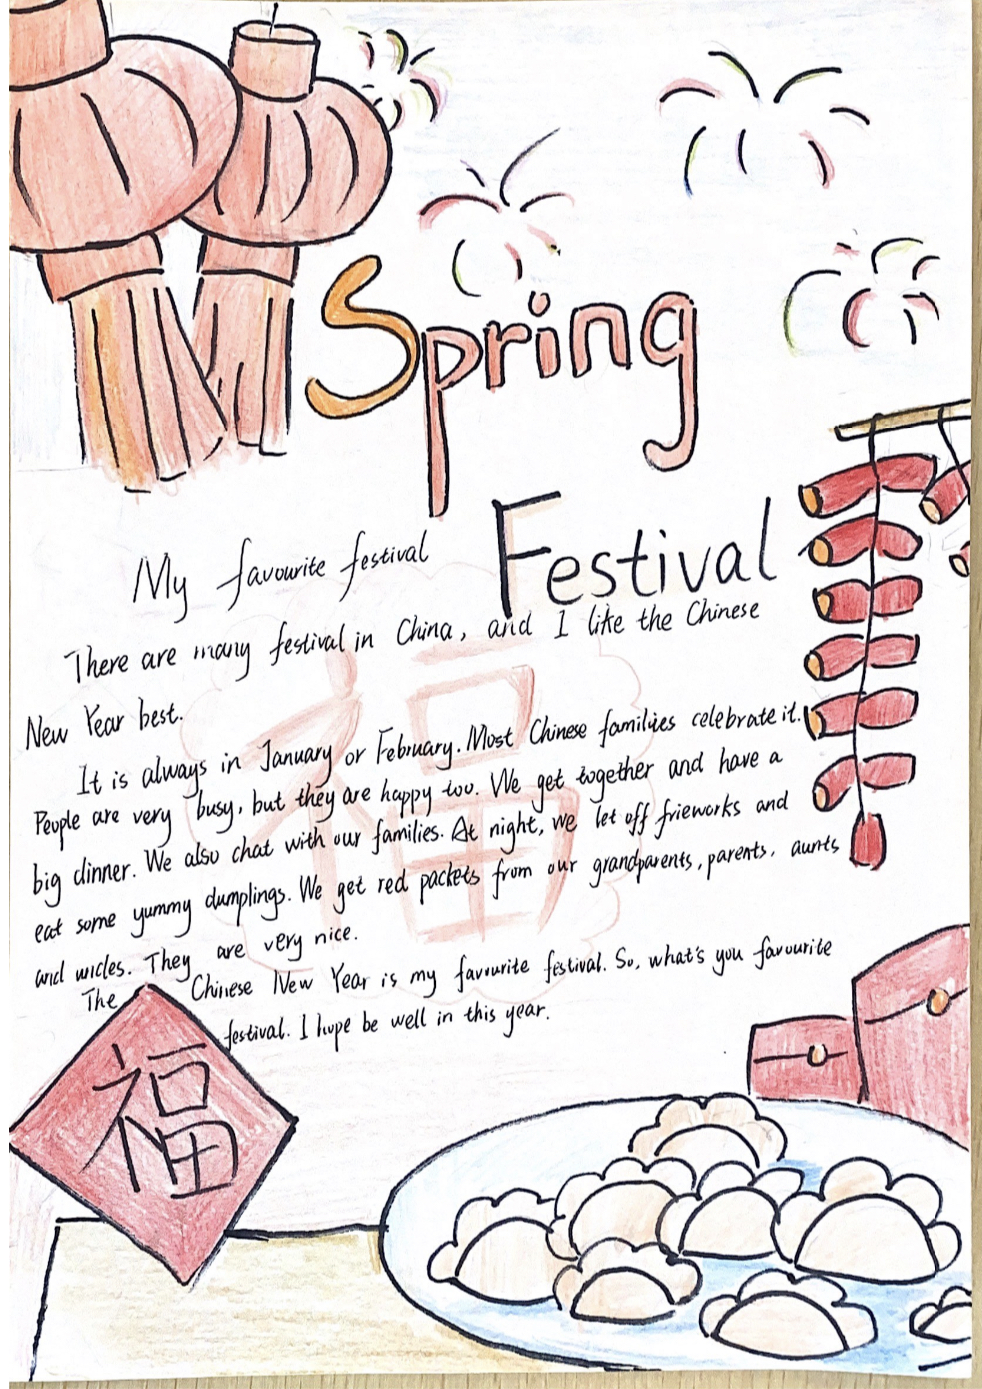 Spring
Festival
My favourite festival
There are many festival in China, and I like the Chinese
New Year best.
It is always in January or February. Most Chinese families celebrate it.
People are very busy, but they are happy too. We get together and have a
big dinner. We also chat with our families. At night, we let off frieworks and
eat some yummy dumplings. We get red packets from our grandparents, parents, aunts
and uncles. They are very nice.
The Chinese New Year is my favourite festival. So, what's you favourite
festival. I hope be well in this year.
福
福